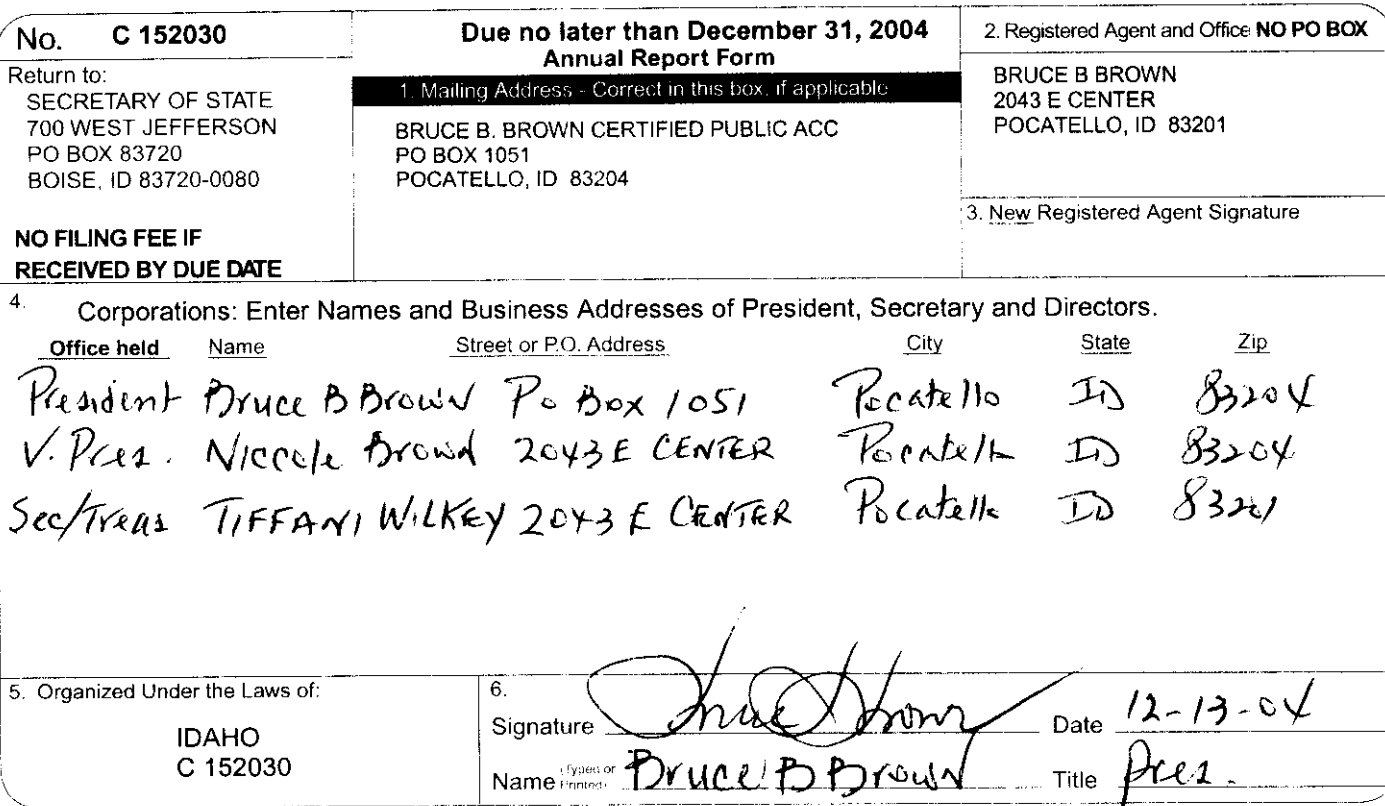 No. C 152030
Return to:
SECRETARY OF STATE
700 WEST JEFFERSON
PO BOX 83720
BOISE, ID 83720-0080
NO FILING FEE IF
RECEIVED BY DUE DATE
Due no later than December 31, 2004
Annual Report Form
1. Mailing Address - Correct in this box, if applicable
BRUCE B. BROWN CERTIFIED PUBLIC ACC
PO BOX 1051
POCATELLO, ID 83204
2. Registered Agent and Office NO PO BOX
BRUCE B BROWN
2043 E CENTER
POCATELLO, ID 83201
3. New Registered Agent Signature
4. Corporations: Enter Names and Business Addresses of President, Secretary and Directors.
Office held Name Street or P.O. Address City State Zip
President Bruce B Brown Po Box 1051 Pocatello ID 83204
V. Pres. Niccole Brown 2043 E CENTER Pocatello ID 83204
Sec/Treas TIFFANI WILKEY 2043 E CENTER Pocatello ID 83201
5. Organized Under the Laws of:
IDAHO
C 152030
6.
Signature Bruce B Brown Date 12-13-04
Name (Typed or Printed) Bruce B Brown Title Pres.